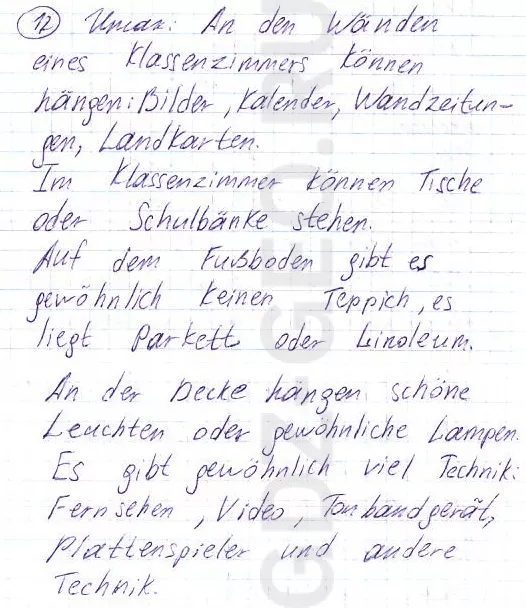 12 Итак: An den Wänden
eines Klassenzimmers können
hängen: Bilder, Kalender, Wandzeitun-
gen, Landkarten.
Im Klassenzimmer können Tische
oder Schulbänke stehen.
Auf dem Fußboden gibt es
gewöhnlich keinen Teppich, es
liegt Parkett oder Linoleum.
An der Decke hängen schöne
Leuchten oder gewöhnliche Lampen.
Es gibt gewöhnlich viel Technik:
Fernsehen, Video, Tonbandgerät,
Plattenspieler und andere
Technik.
GDZ-GEO.RU